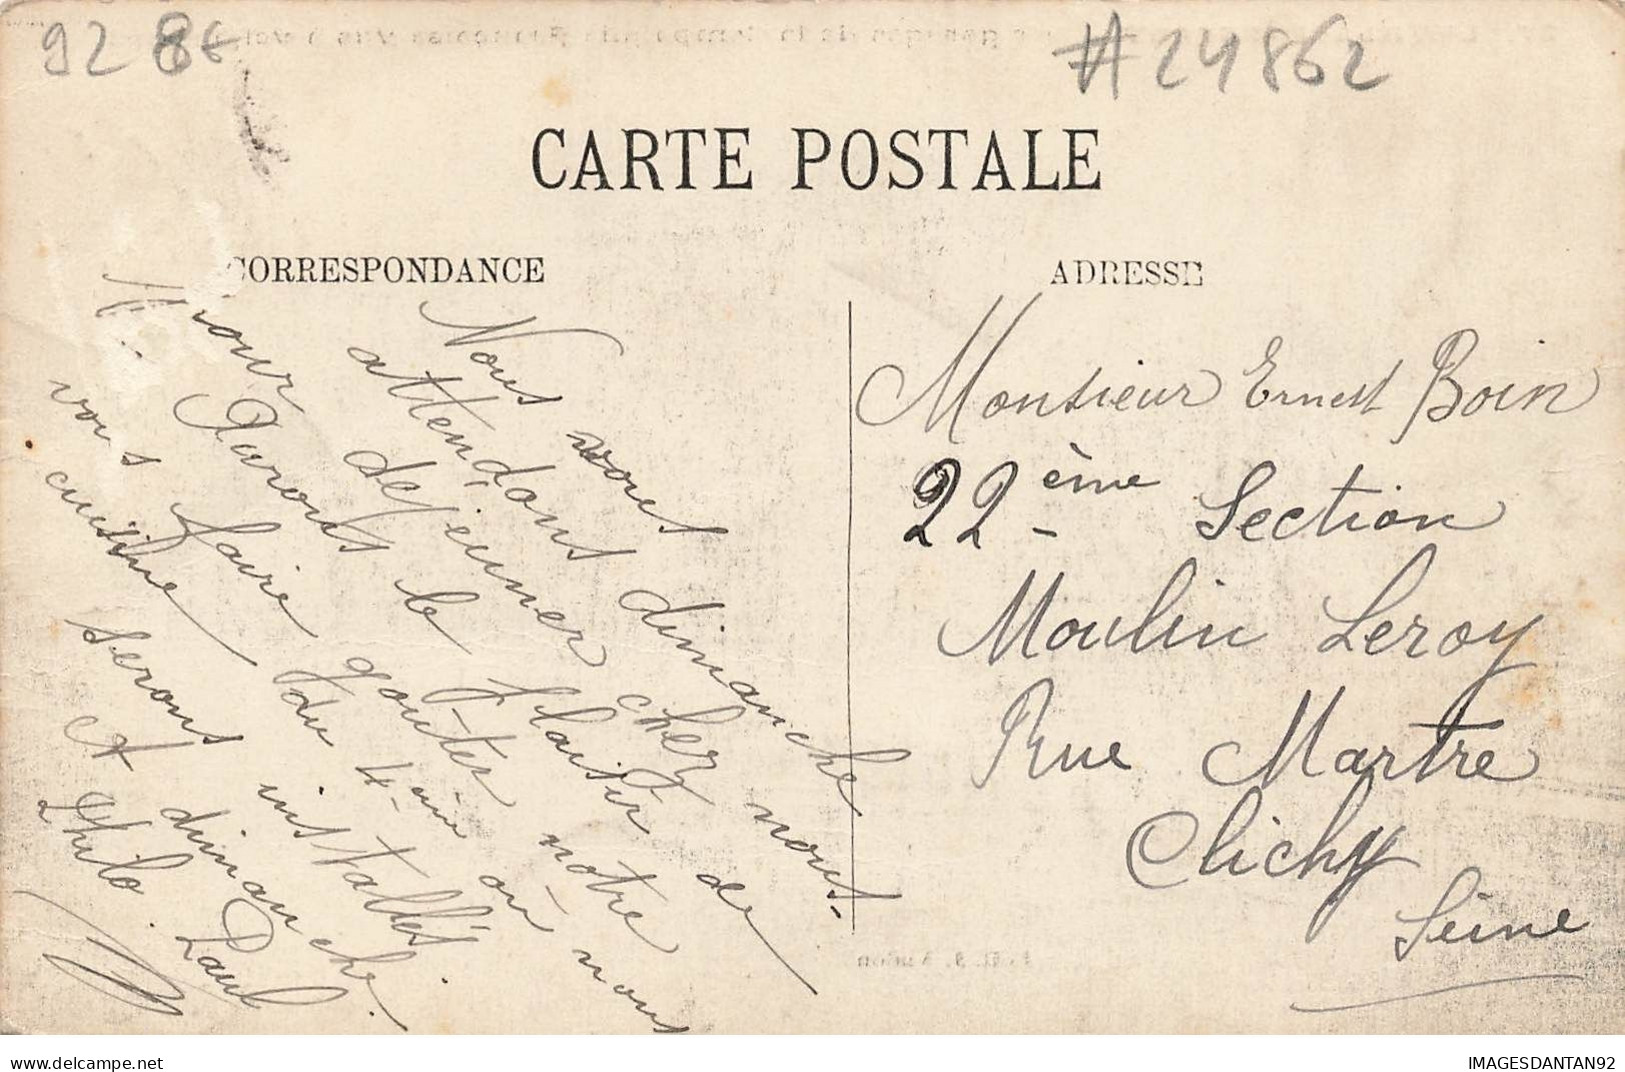 92 8€
#24862
CARTE POSTALE
CORRESPONDANCE
ADRESSE
Nous vous
attendons dimanche
pour dejeuner chez nous-
Aurons le plaisir de
vous faire goûter notre
cuisine du 4ème où nous
serons installés.
et dimanche.
Philo. Paul
Monsieur Ernest Boin
22ème Section
Moulin Leroy
Rue Martre
Clichy
Seine
www.delcampe.net
IMAGESDANTAN92